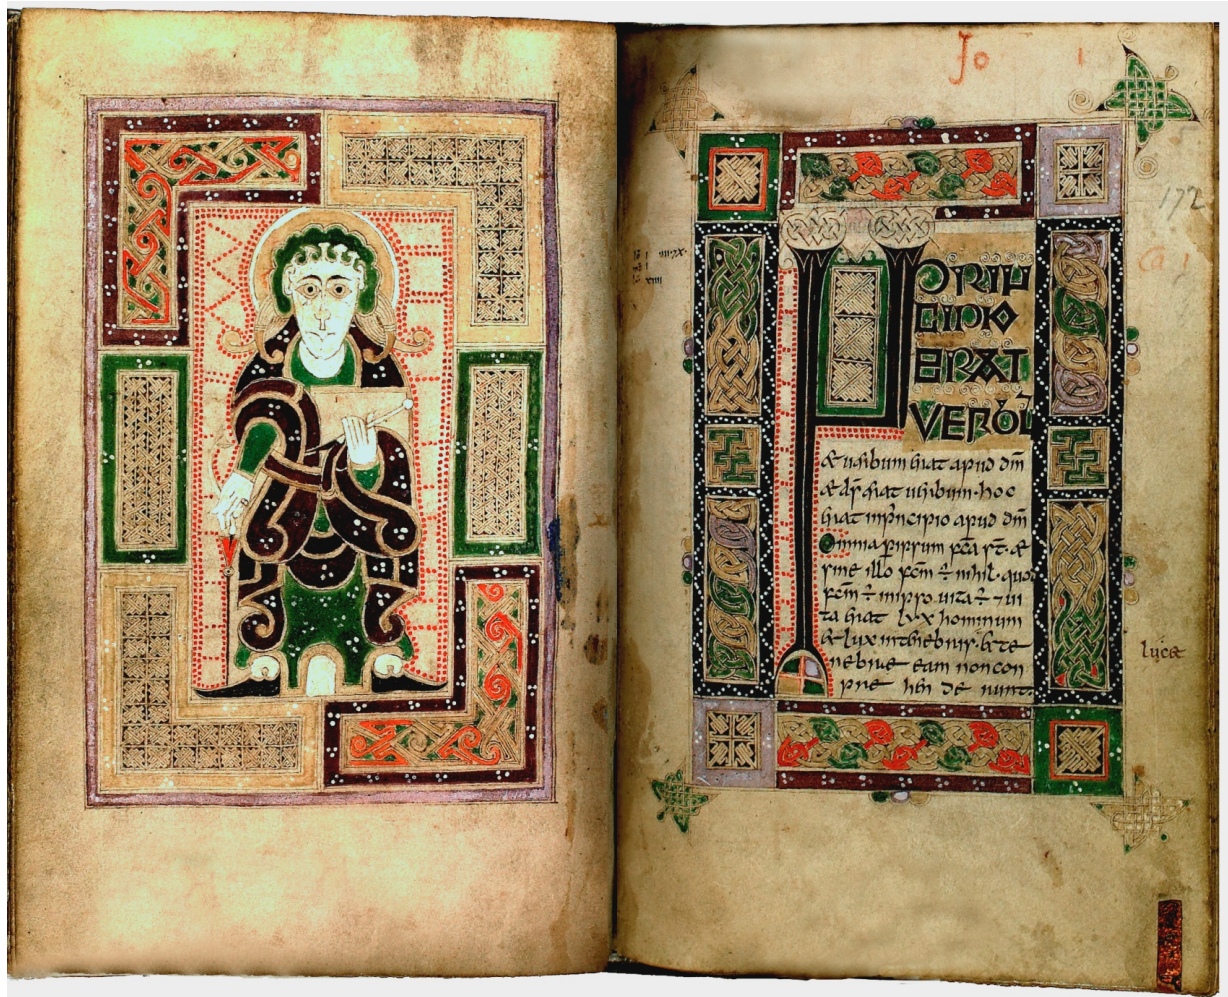 Jo 1
172
Ca 1
IN PRIN
CIPIO
ERAT
VERBŪ 7
& uerbum erat apud dm̄
& ds̄ erat uerbum. hoc
erat in principio apud dm̄
Omnia per ipsum fc̄a st̄. &
sine illo fc̄m ÷ nihil. quod
fc̄m ÷ in ipso uita ÷ 7 ui
ta erat lux hominum
& lux in tenebris. & te
nebrae eam non con
prae hen de runt.
luc&